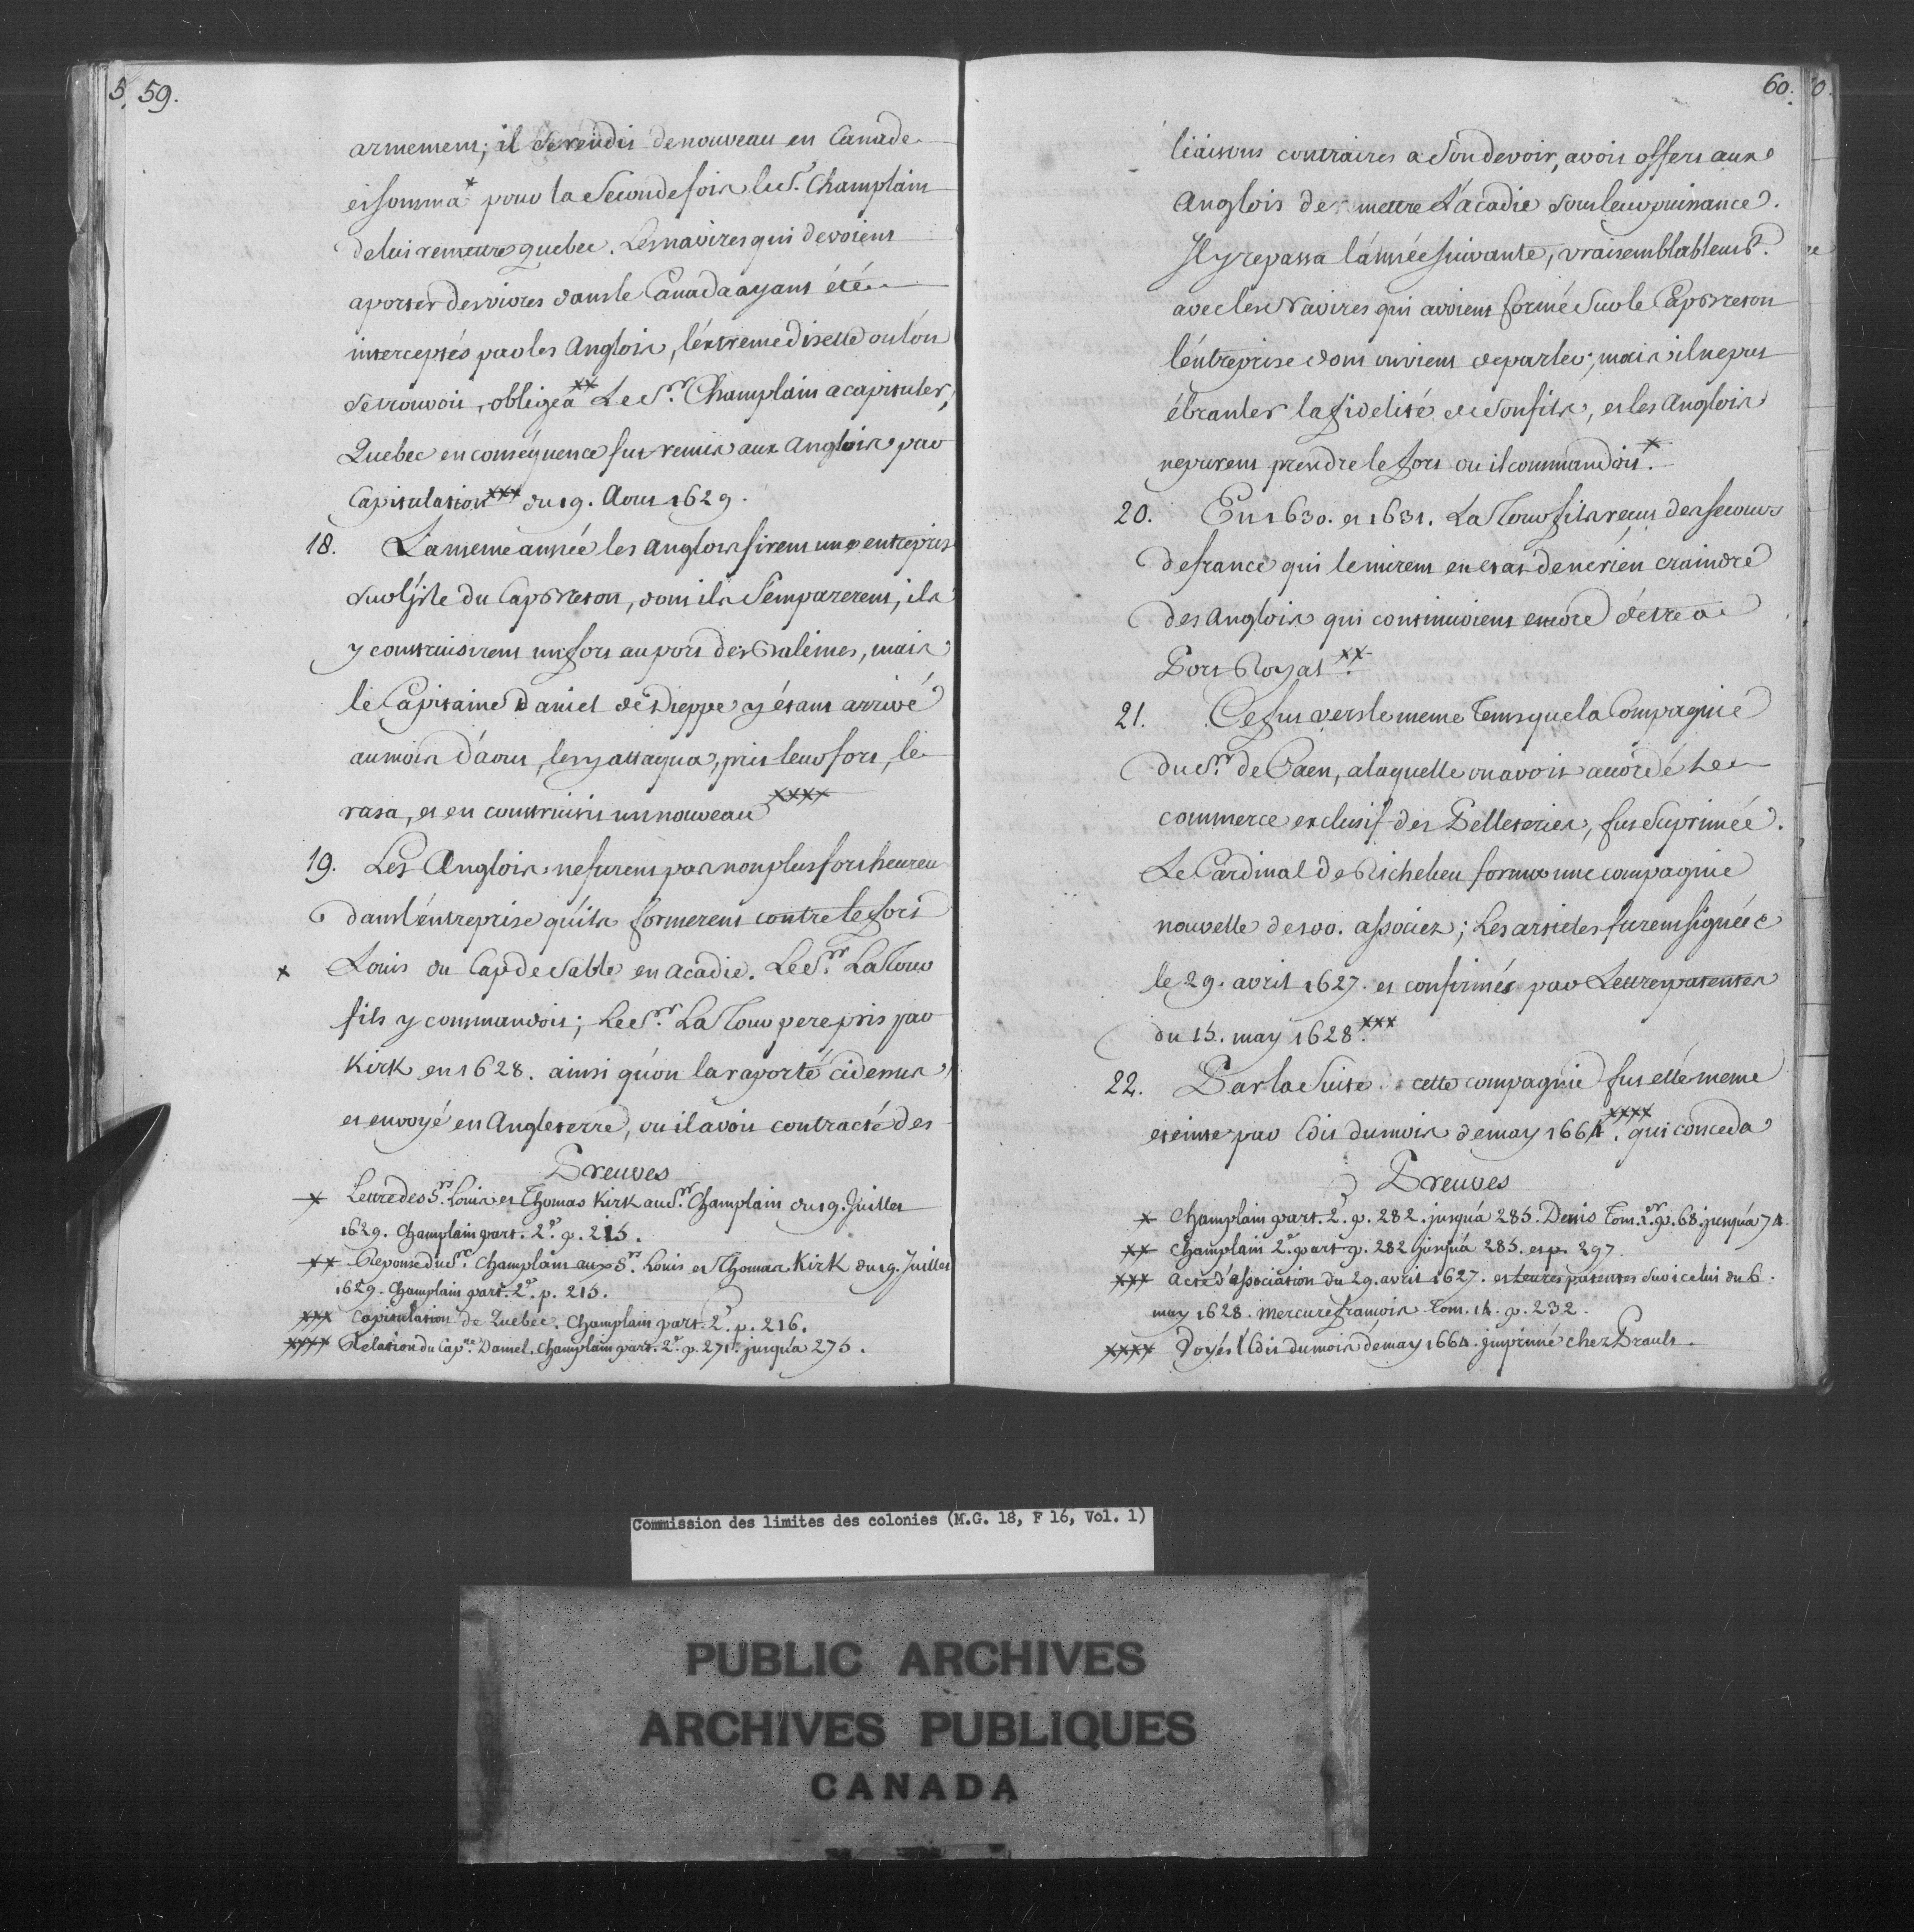 5. 59.
armement; il se rendit de nouveau en Canada
et somma * pour la seconde fois le Sr. Champlain
de lui remettre quebec. Les navires qui devoient
aporter des vivres dans le Canada ayant été
interceptés par les Anglois, l'éxtreme disette ou l'on
se trouvoit, obligea xx Le Sr. Champlain a capituler,
Quebec en conséquence fut remis aux Anglois par
Capitulation xxx du 19. Aout 1629.
18. La meme année les Anglois firent une entrepris
sur l'isle du Cap Breton, dont ils s'emparerent, ils
y construisirent un fort au port des Baleines, mais
le Capitaine Daniel de Dieppe y étant arrivé
au mois d'aout, les y attaqua, prit leur fort, le
rasa, et en construisit un nouveau xxxx
19. Les Anglois ne furent pas non plus fort heureu
dans l'éntreprise qu'ils formerent contre le fort
x Louis du Cap de Sable en Acadie. Le Sr. La Tour
fils y commandoit; Le Sr. La Tour pere pris par
Kirk en 1628. ainsi qu'on la raporté cidessus,
et envoyé en Angleterre, ou il avoit contracté des
Preuves
x Lettre des Srs. Louis et Thomas Kirk au Sr. Champlain du 19. Juillet
1629. Champlain part. 2e. p. 215.
xx Reponse du Sr. Champlain aux Srs. Louis et Thomas Kirk du 19. Juillet
1629. Champlain part. 2e. p. 215.
xxx Capitulation de Quebec. Champlain part. 2e. p. 216.
xxxx Relation du Capne. Daniel. Champlain part. 2e. p. 271. jusqu'a 275.
60. 0.
liaisons contraires a son devoir, avoit offert aux
Anglois de remettre L'acadie sous leur puissance.
Il y repassa l'année suivante, vraisemblablemt.
avec les Navires qui avoient formé sur le Cap Breton
l'éntreprise dont on vient de parler; mais il ne put
ébranler la fidelité de son fils, et les Anglois
ne purent prendre le fort ou il commandoit. x
20. En 1630. et 1631. La Tour fils reçut des secours
de france qui le mirent en etat de ne rien craindre
des Anglois qui continuoient encore d'étre a
Port Royal xx.
21. Ce fut vers le meme Tems que la Compagnie
du Sr. de Caen, a laquelle on avoit accordé Le
commerce exclusif des Pelleteries, fut suprimée.
Le Cardinal de Richelieu forma une compagnie
nouvelle de 100. associez; Les articles furent signées
le 29. avril 1627. et confirmés par Lettres patentes
du 15. may 1628. xxx
22. Par la Suite cette compagnie fut elle meme
eteinte par Edit du mois de may 1664. xxxx qui conceda
Preuves
x Champlain part. 2e. p. 282. jusqu'a 285. Denis Tom. 1er. p. 68. jusqu'a 74.
xx Champlain 2e. part p. 282 jusqu'a 285. et p. 297.
xxx acte d'association du 29. avril 1627. et Lettres patentes sur icelui du 6.
may 1628. Mercure francois Tom. 14. p. 232.
xxxx Voyés l'Edit du mois de may 1664. imprimé chez Prault.
Commission des limites des colonies (M.G. 18, F 16, Vol. 1)
PUBLIC ARCHIVES
ARCHIVES PUBLIQUES
CANADA